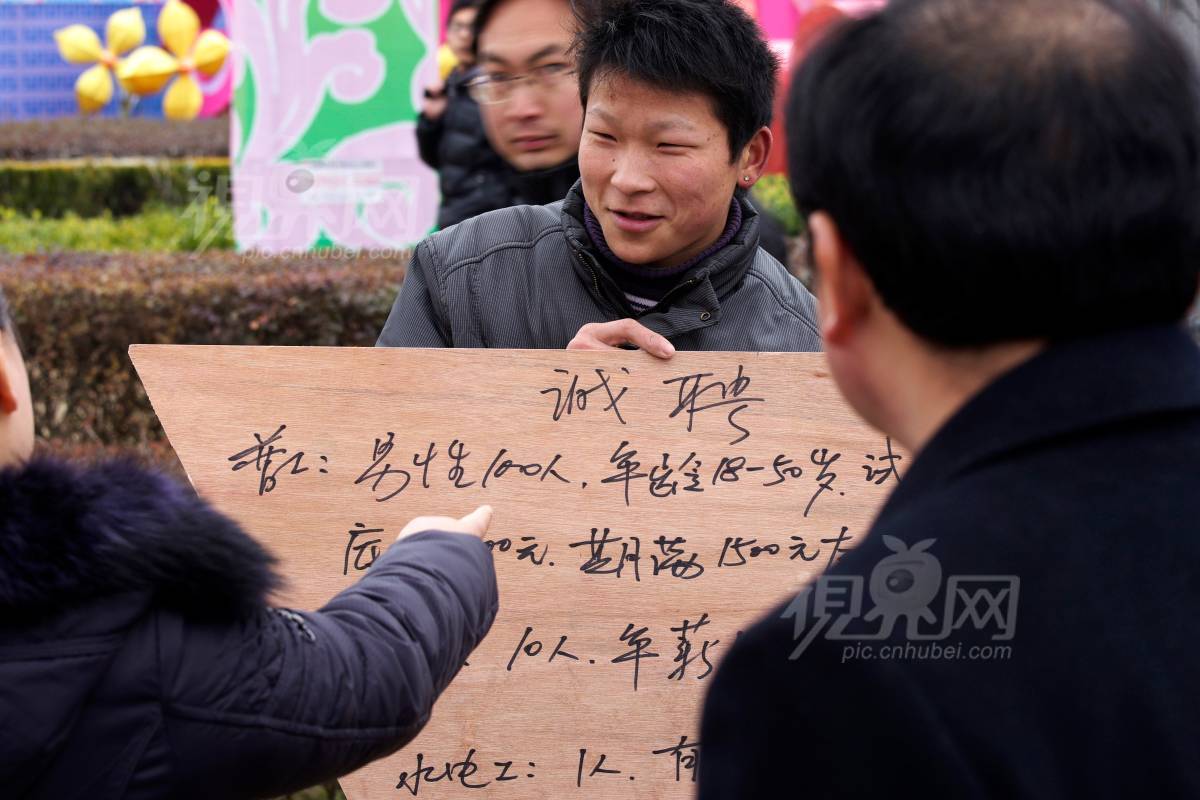 诚聘
普工：男性100人，年龄18-50岁，试
底 00元，
月满1500元
10人，年薪
水电工：1人，有
视界网
pic.cnhubei.com
视界网
pic.cnhubei.com